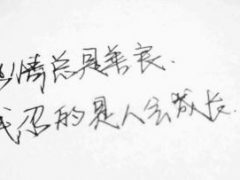 情总是善良.
忍的是人会成长.